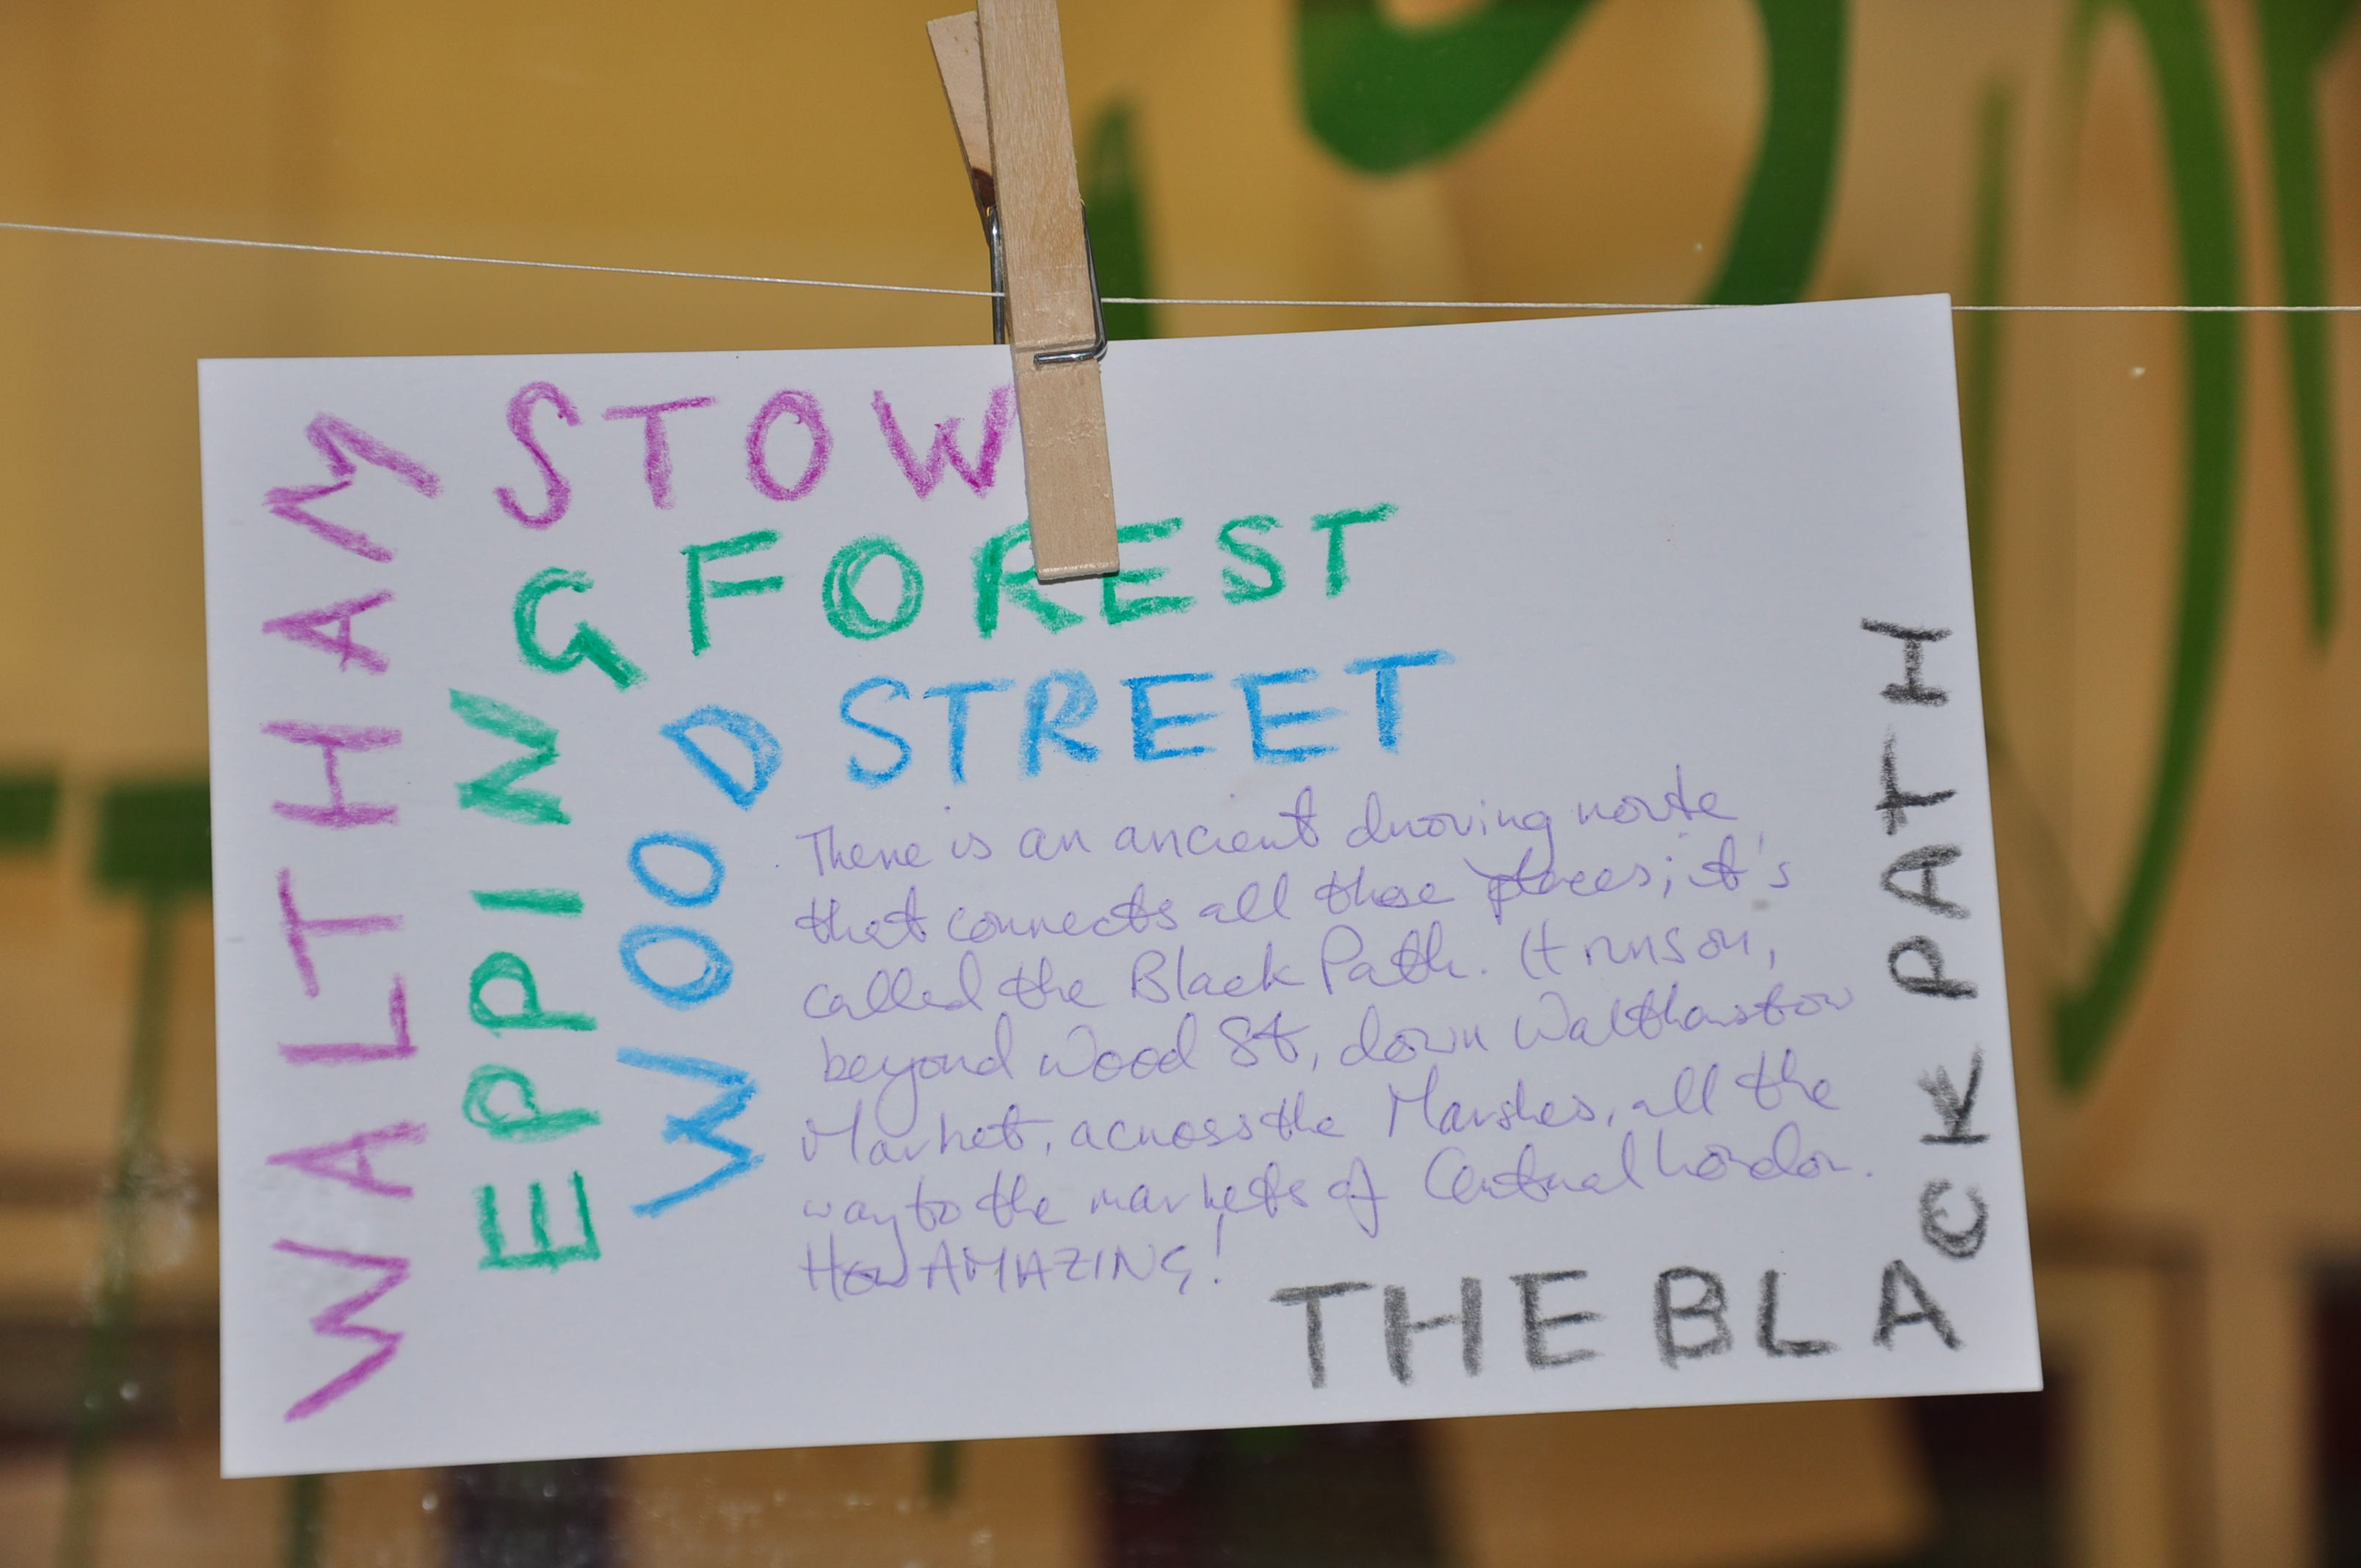 WALTHAM STOW
EPPING FOREST
WOOD STREET
There is an ancient droving route
that connects all these places; it's
called the Black Path. It runs on,
beyond Wood St, down Walthamstow
Market, across the Marshes, all the
way to the markets of Central London.
How AMAZING!
THE BLACK PATH